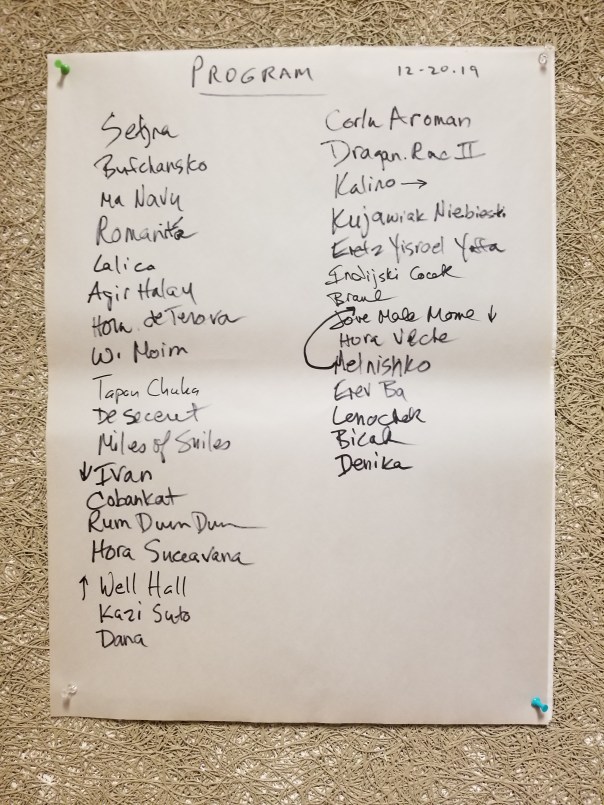 PROGRAM 12-20-19
Setjna
Bufchansko
Ma Navu
Romanita
Lalica
Agir Halay
Hora de Terova
W. Moim
Tapan Chuka
De Seceret
Miles of Smiles
↓ Ivan
Cobankat
Rum Dum Dum
Hora Suceavana
↑ Well Hall
Kazi Suto
Dana
Corlu Aroman
Dragan. Rac II
Kalino →
Kujawiak Niebieski
Eretz Yisroel Yaffa
Indijski Cocek
Branle
Jove Male Mome ↓
Hora Veche
Melnishko
Erev Ba
Lenochek
Bicak
Denika